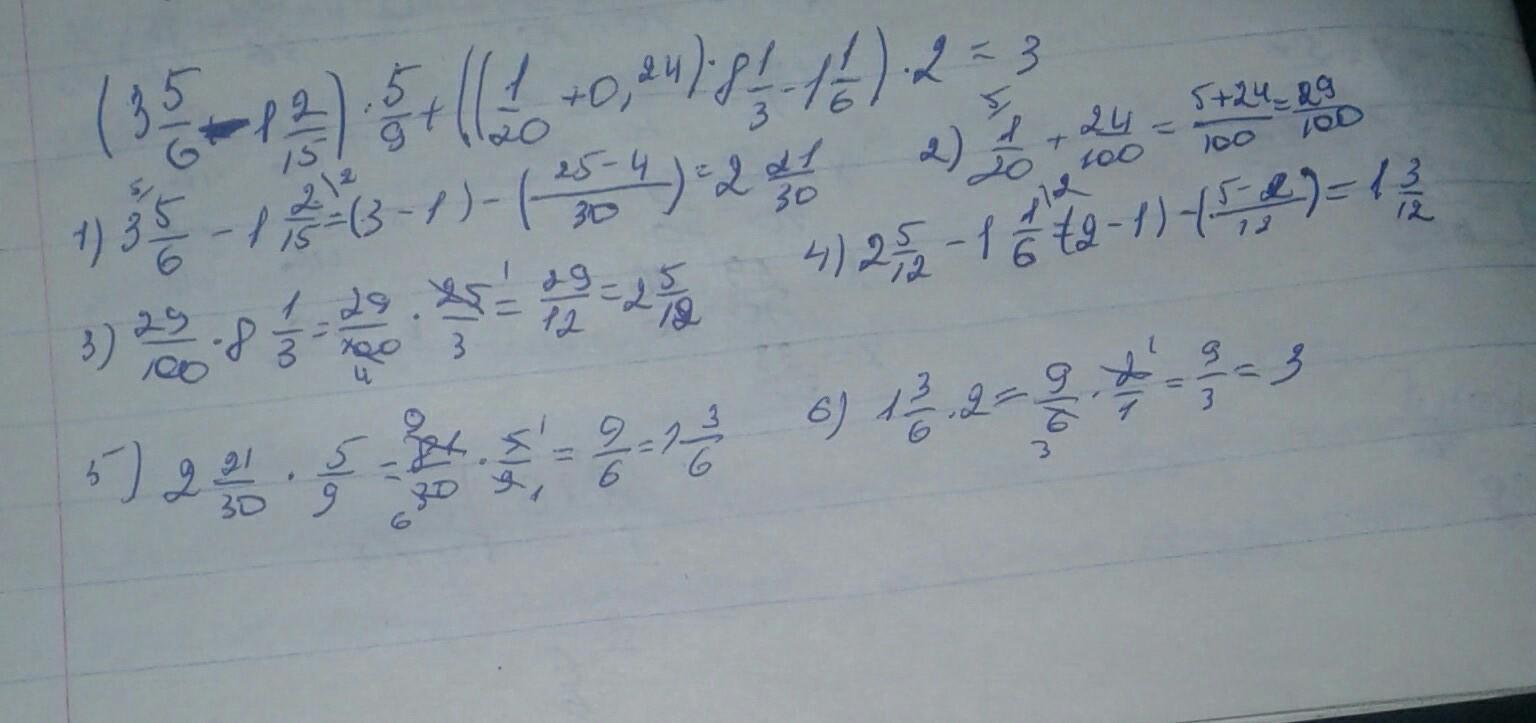 (3 5/6 - 1 2/15) · 5/9 + ((1/20 + 0,24) · 8 1/3 - 1 1/6) · 2 = 3
1) 3 5/6 - 1 2/15 = (3 - 1) - ((25 - 4)/30) = 2 21/30
2) 1/20 + 24/100 = (5+24)/100 = 29/100
3) 29/100 · 8 1/3 = 29/100 · 25/3 = 29/12 = 2 5/12
4) 2 5/12 - 1 1/6 = (2 - 1) - ((5 - 2)/12) = 1 3/12
5) 2 21/30 · 5/9 = 81/30 · 5/9 = 9/6 = 1 3/6
6) 1 3/6 · 2 = 9/6 · 2/1 = 9/3 = 3